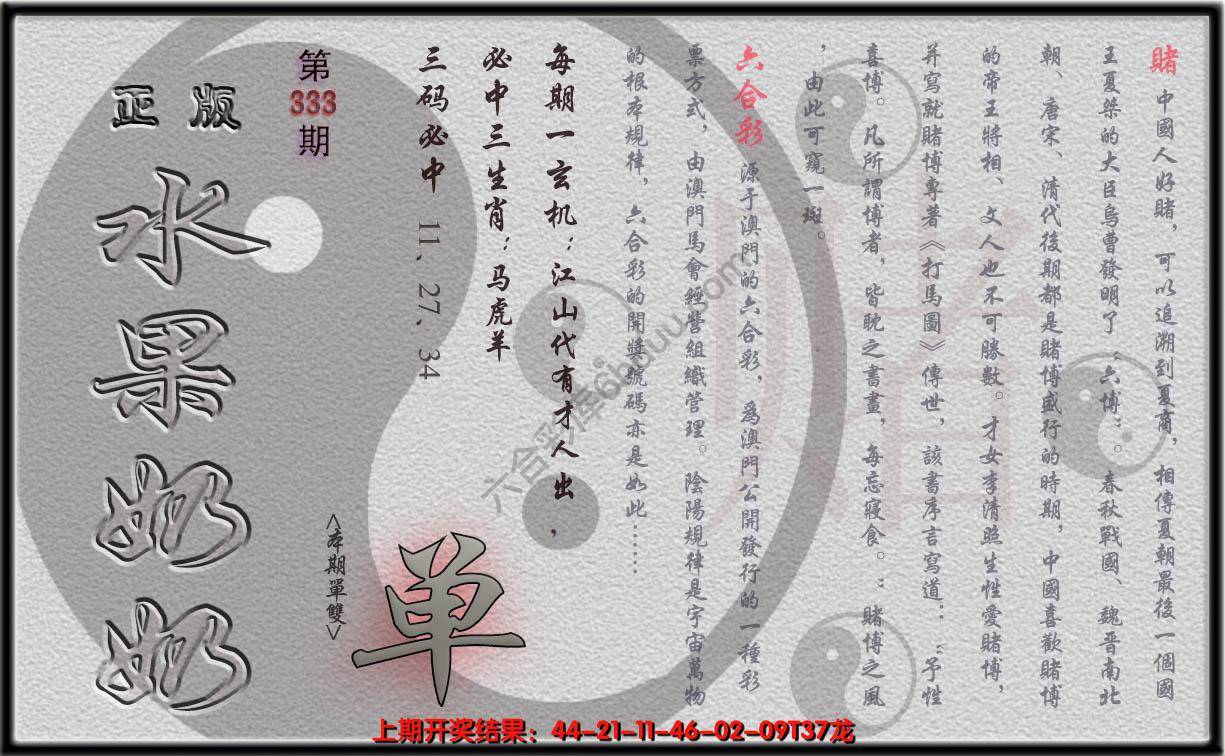 賭 中國人好賭，可以追溯到夏商，相傳夏朝最後一個國
王夏桀的大臣烏曹發明了“六博”。春秋戰國、魏晋南北
朝、唐宋、清代後期都是賭博盛行的時期，中國喜歡賭博
的帝王將相、文人也不可勝數。才女李清照生性愛賭博，
并寫就賭博專著《打馬圖》傳世，該書序言寫道：“予性
喜博。凡所謂博者，皆耽之書畫，每忘寢食。”賭博之風
，由此可窺一斑。
六合彩 源于澳門的六合彩，爲澳門公開發行的一種彩
票方式，由澳門馬會經營組織管理。陰陽規律是宇宙萬物
的根本規律，六合彩的開獎號碼亦是如此……
每期一玄机：江山代有才人出，
必中三生肖：马虎羊
三码必中 11、27、34
第333期
正版
水果奶奶
<本期單雙>
单
上期开奖结果：44-21-11-46-02-09T37龙
賭
六合彩库6huuu.com